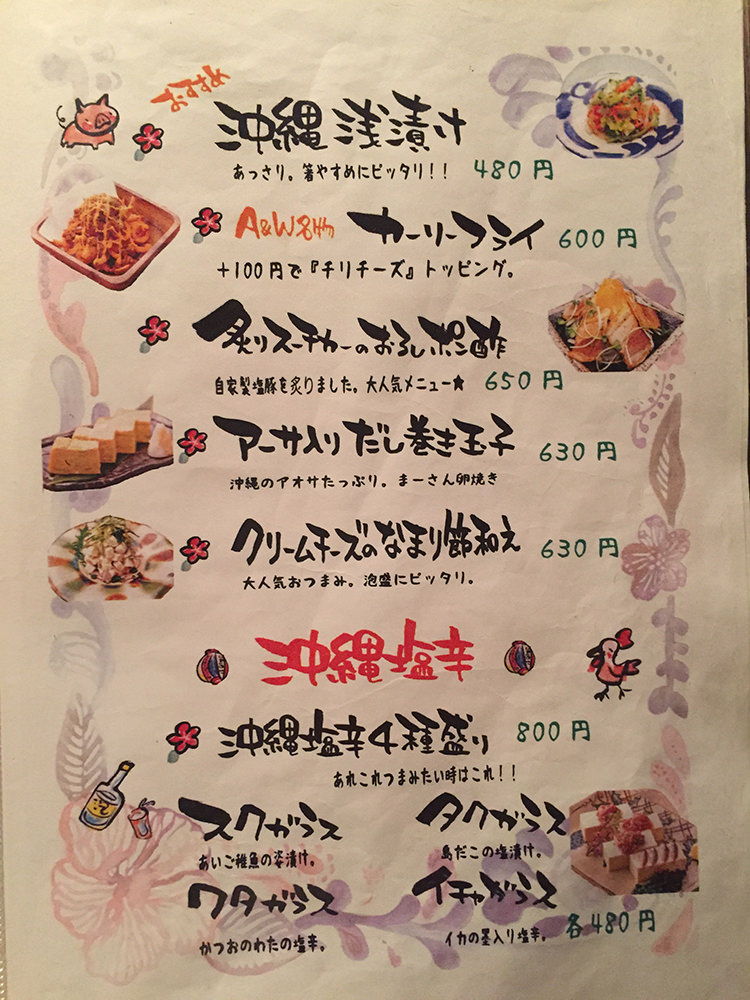 おすすめ
沖縄浅漬け
あっさり。箸やすめにピッタリ！！ 480円
A&W名物 カーリーフライ 600円
+100円で『チリチーズ』トッピング。
炙りスーチカーのおろしポン酢
自家製塩豚を炙りました。大人気メニュー★ 650円
アーサ入りだし巻き玉子 630円
沖縄のアオサたっぷり。まーさん卵焼き
クリームチーズのなまり節和え 630円
大人気おつまみ。泡盛にピッタリ。
沖縄塩辛
沖縄塩辛4種盛り 800円
あれこれつまみたい時はこれ！！
スクガラス
あいご稚魚の姿漬け。
タクガラス
島だこの塩漬け。
ワタガラス
かつおのわたの塩辛。
イチャガラス
イカの墨入り塩辛。
各480円